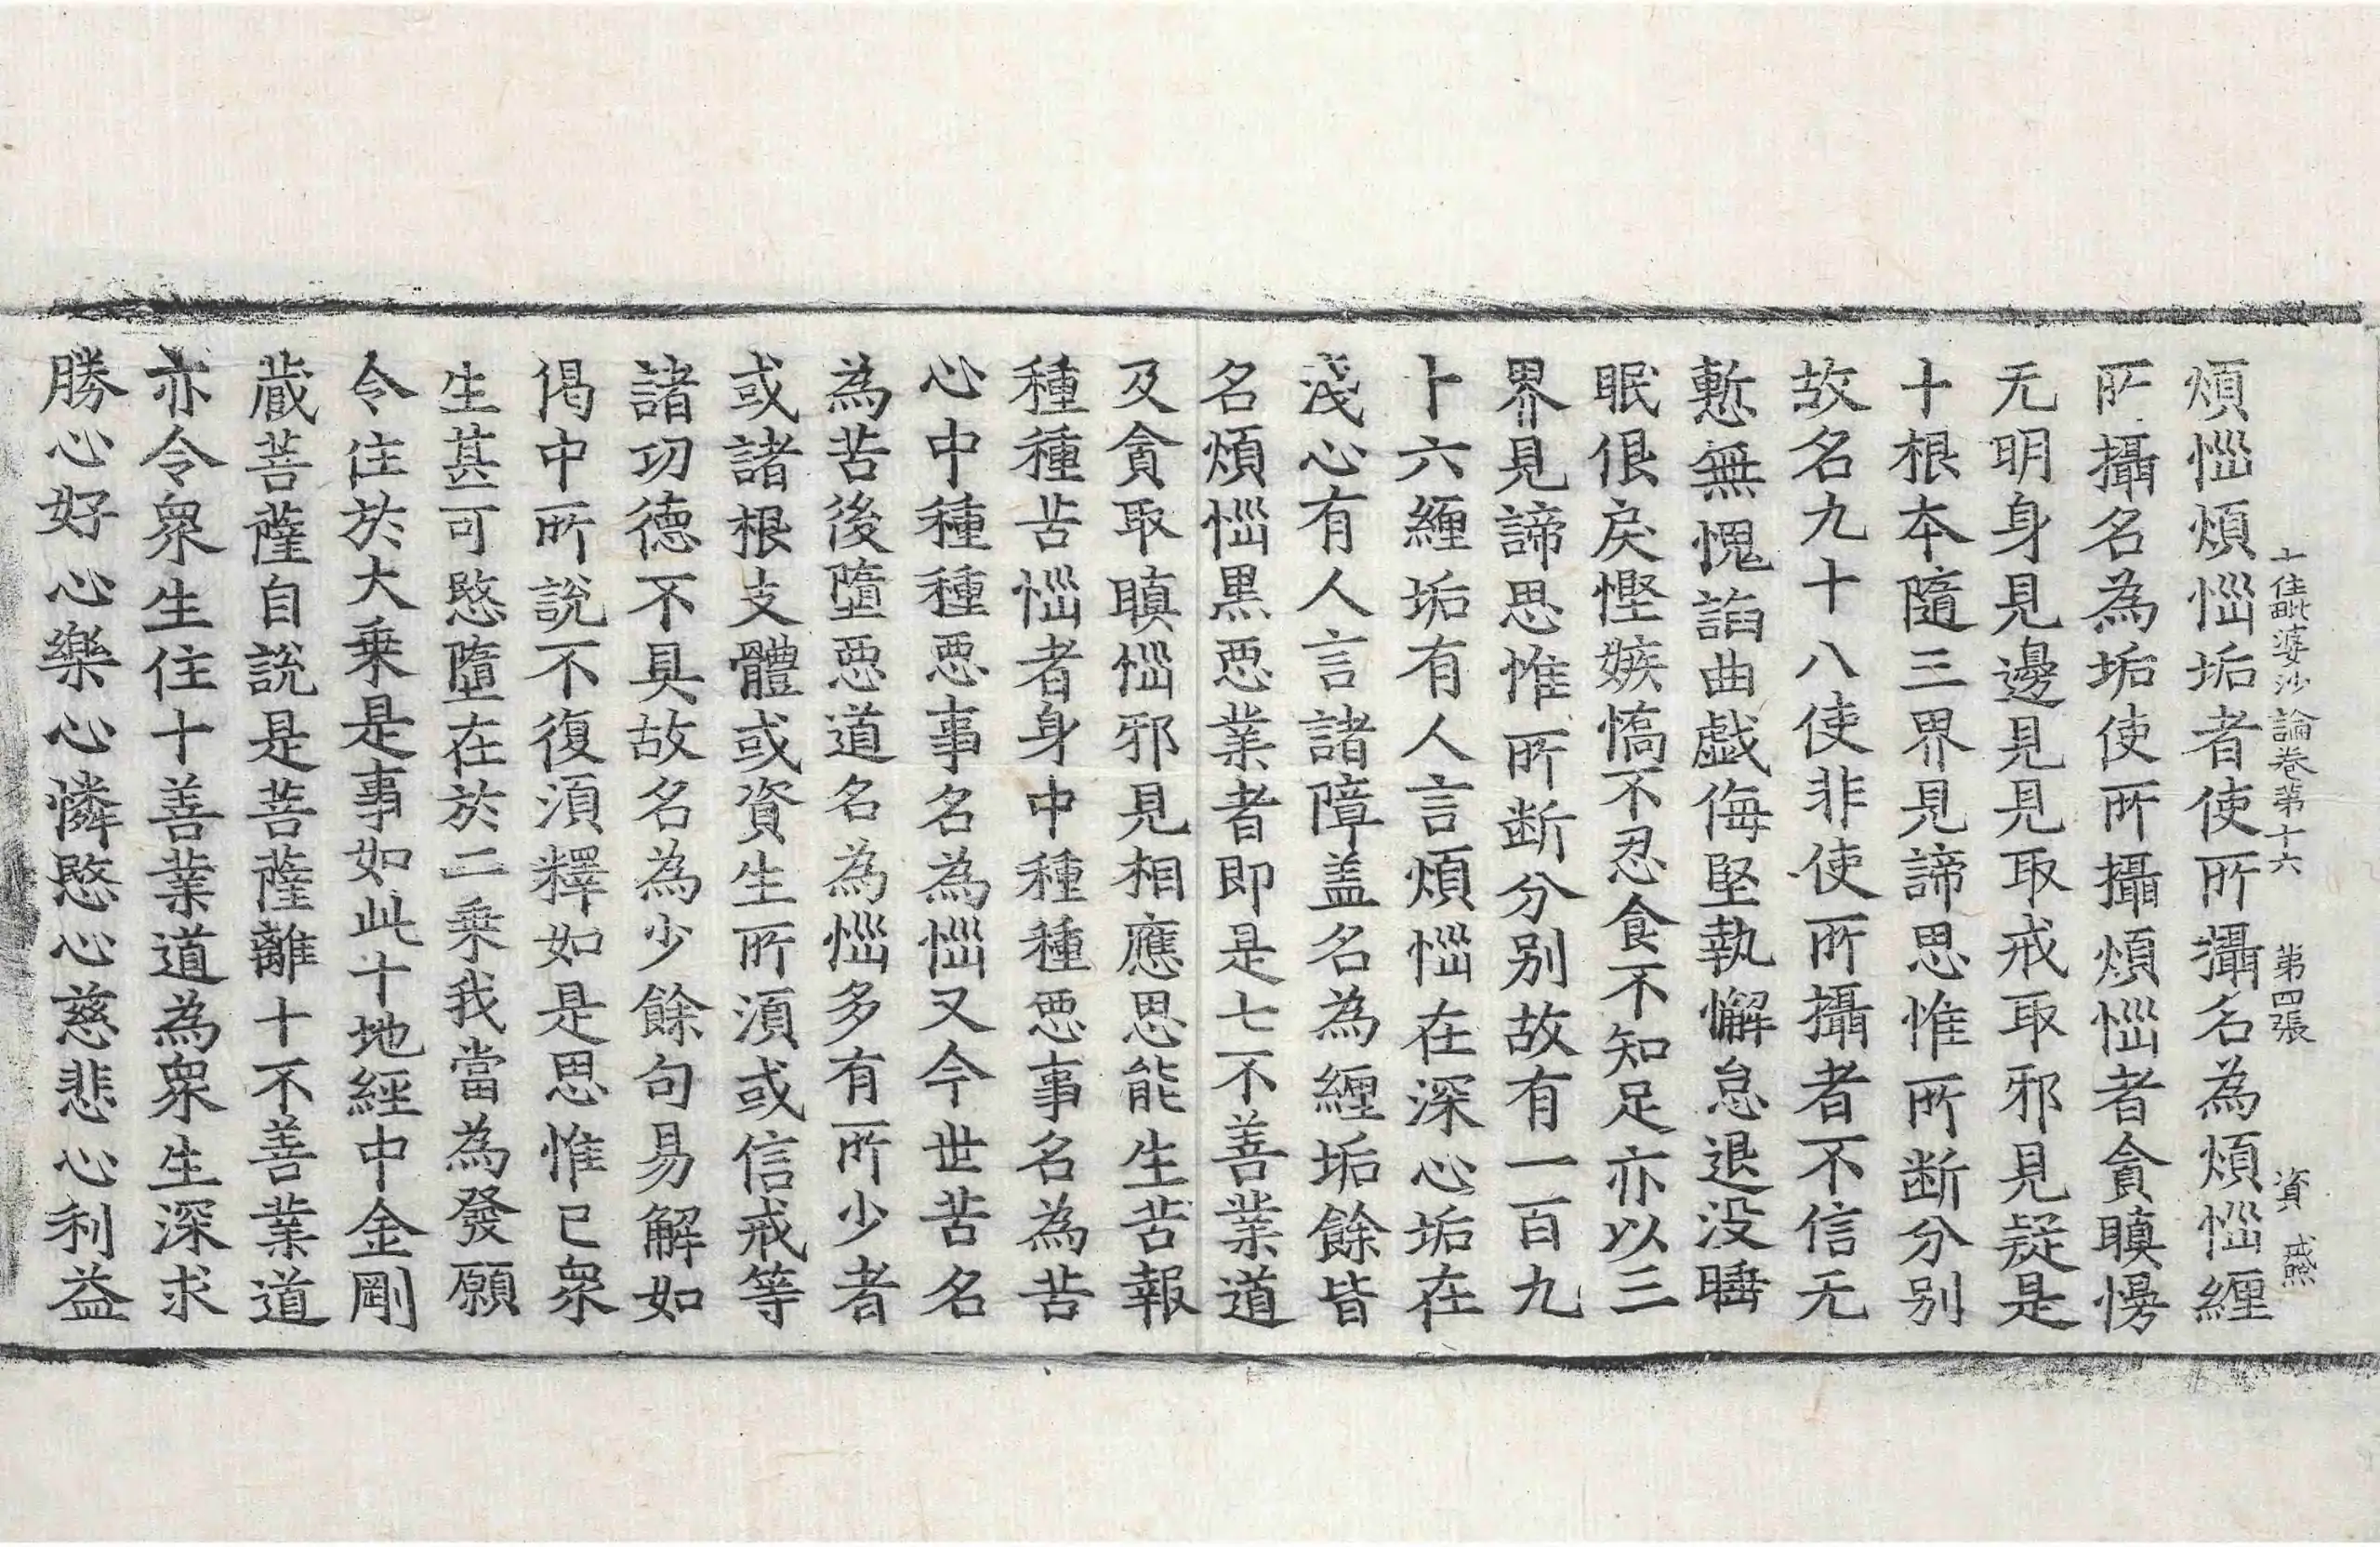 十住毗婆沙論卷第十六 第四張 資 戒熈
煩惱煩惱垢者使所攝名為煩惱纏
所攝名為垢使所攝煩惱者貪瞋慢
无明身見邊見見取戒取邪見疑是
十根本隨三界見諦思惟所断分別
故名九十八使非使所攝者不信无
慙無愧諂曲戱侮堅執懈怠退没睡
眠佷戾慳嫉憍不忍食不知足亦以三
界見諦思惟所断分别故有一百九
十六纏垢有人言煩惱在深心垢在
淺心有人言諸障盖名為纏垢餘皆
名煩惱黒惡業者即是七不善業道
及貪取瞋惱邪見相應思能生苦報
種種苦惱者身中種種惡事名為苦
心中種種惡事名為惱又今世苦名
為苦後墮惡道名為惱多有所少者
或諸根支體或資生所湏或信戒等
諸功德不具故名為少餘句易解如
偈中所說不復湏釋如是思惟已衆
生甚可愍墮在於二乗我當為發願
令住於大乗是事如此十地經中金剛
蔵菩薩自說是菩薩離十不善業道
亦令衆生住十善業道為衆生深求
勝心好心樂心憐愍心慈悲心利益